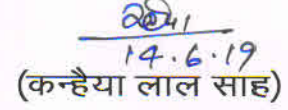 14.6.19
(कन्हैया लाल साह)